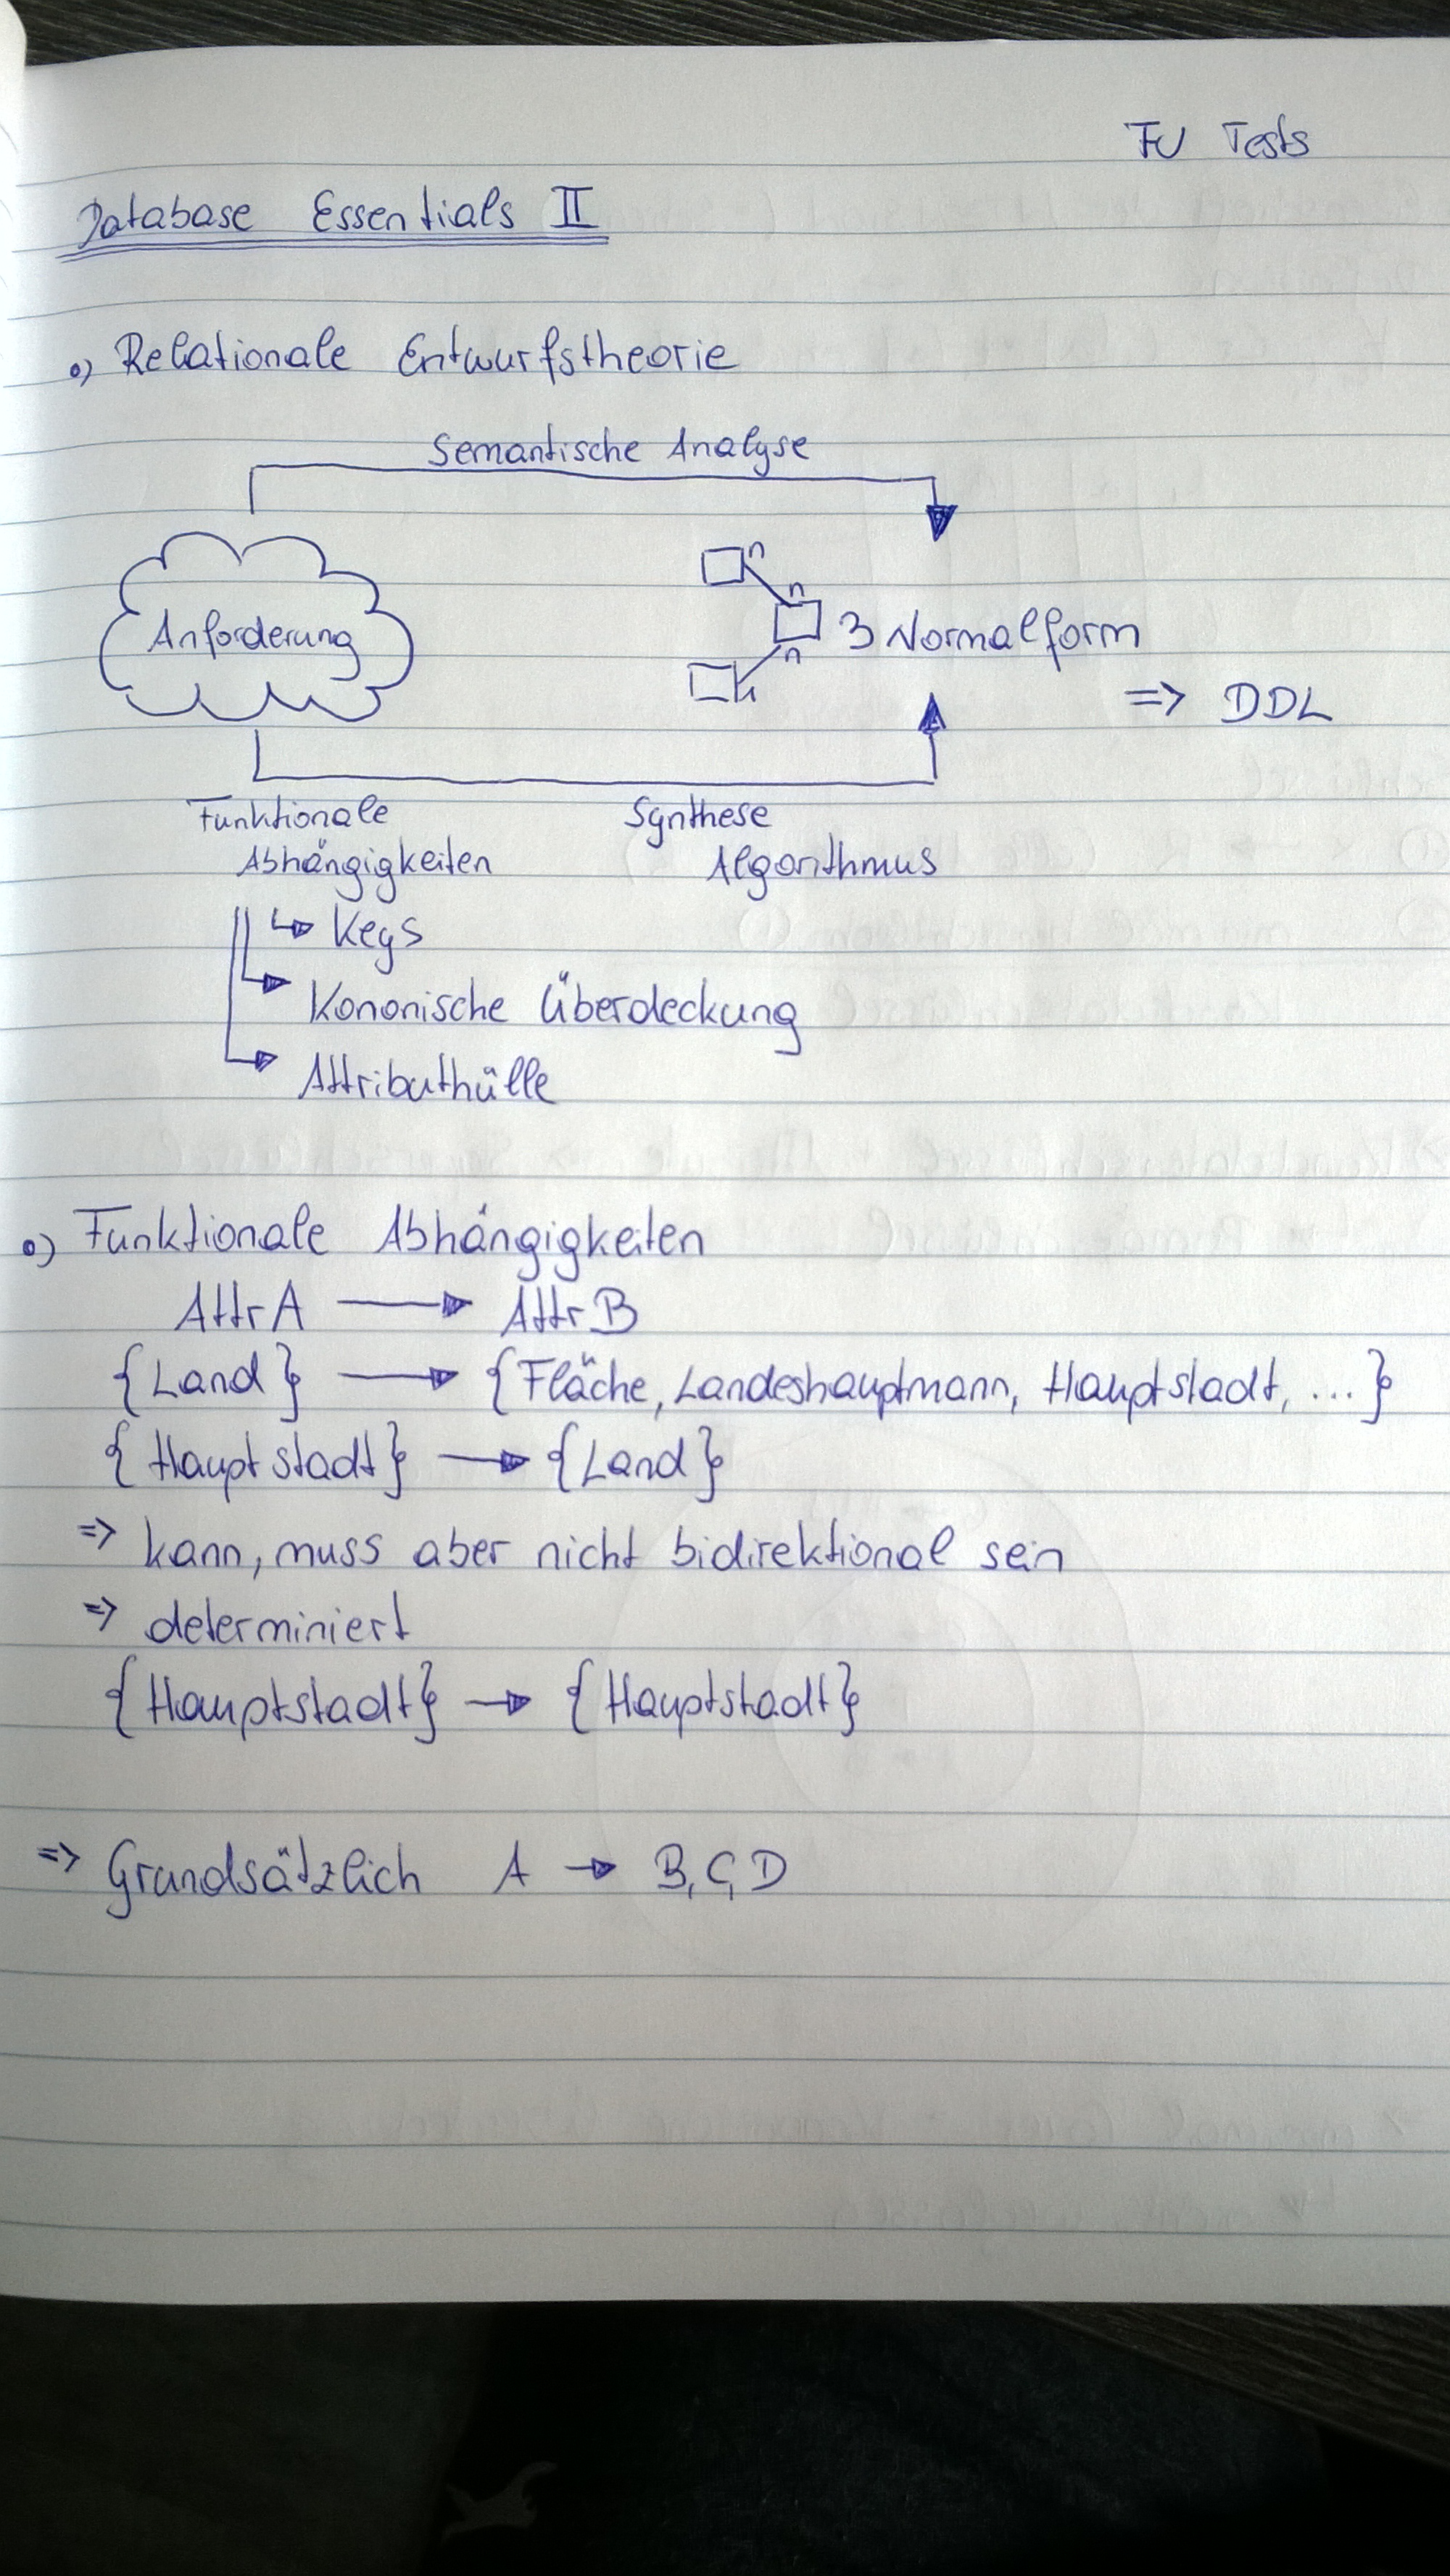 FU Tests
Database Essentials II
o) Relationale Entwurfstheorie
Semantische Analyse
n
n
Anforderung
3 Normalform
n
n
=> DDL
Funktionale Synthese
Abhängigkeiten Algorithmus
Keys
Kononische Überdeckung
Attributhülle
o) Funktionale Abhängigkeiten
Attr A → Attr B
{Land} → {Fläche, Landeshauptmann, Hauptstadt, ...}
{Hauptstadt} → {Land}
=> kann, muss aber nicht bidirektional sein
=> determiniert
{Hauptstadt} → {Hauptstadt}
=> Grundsätzlich A → B, C, D